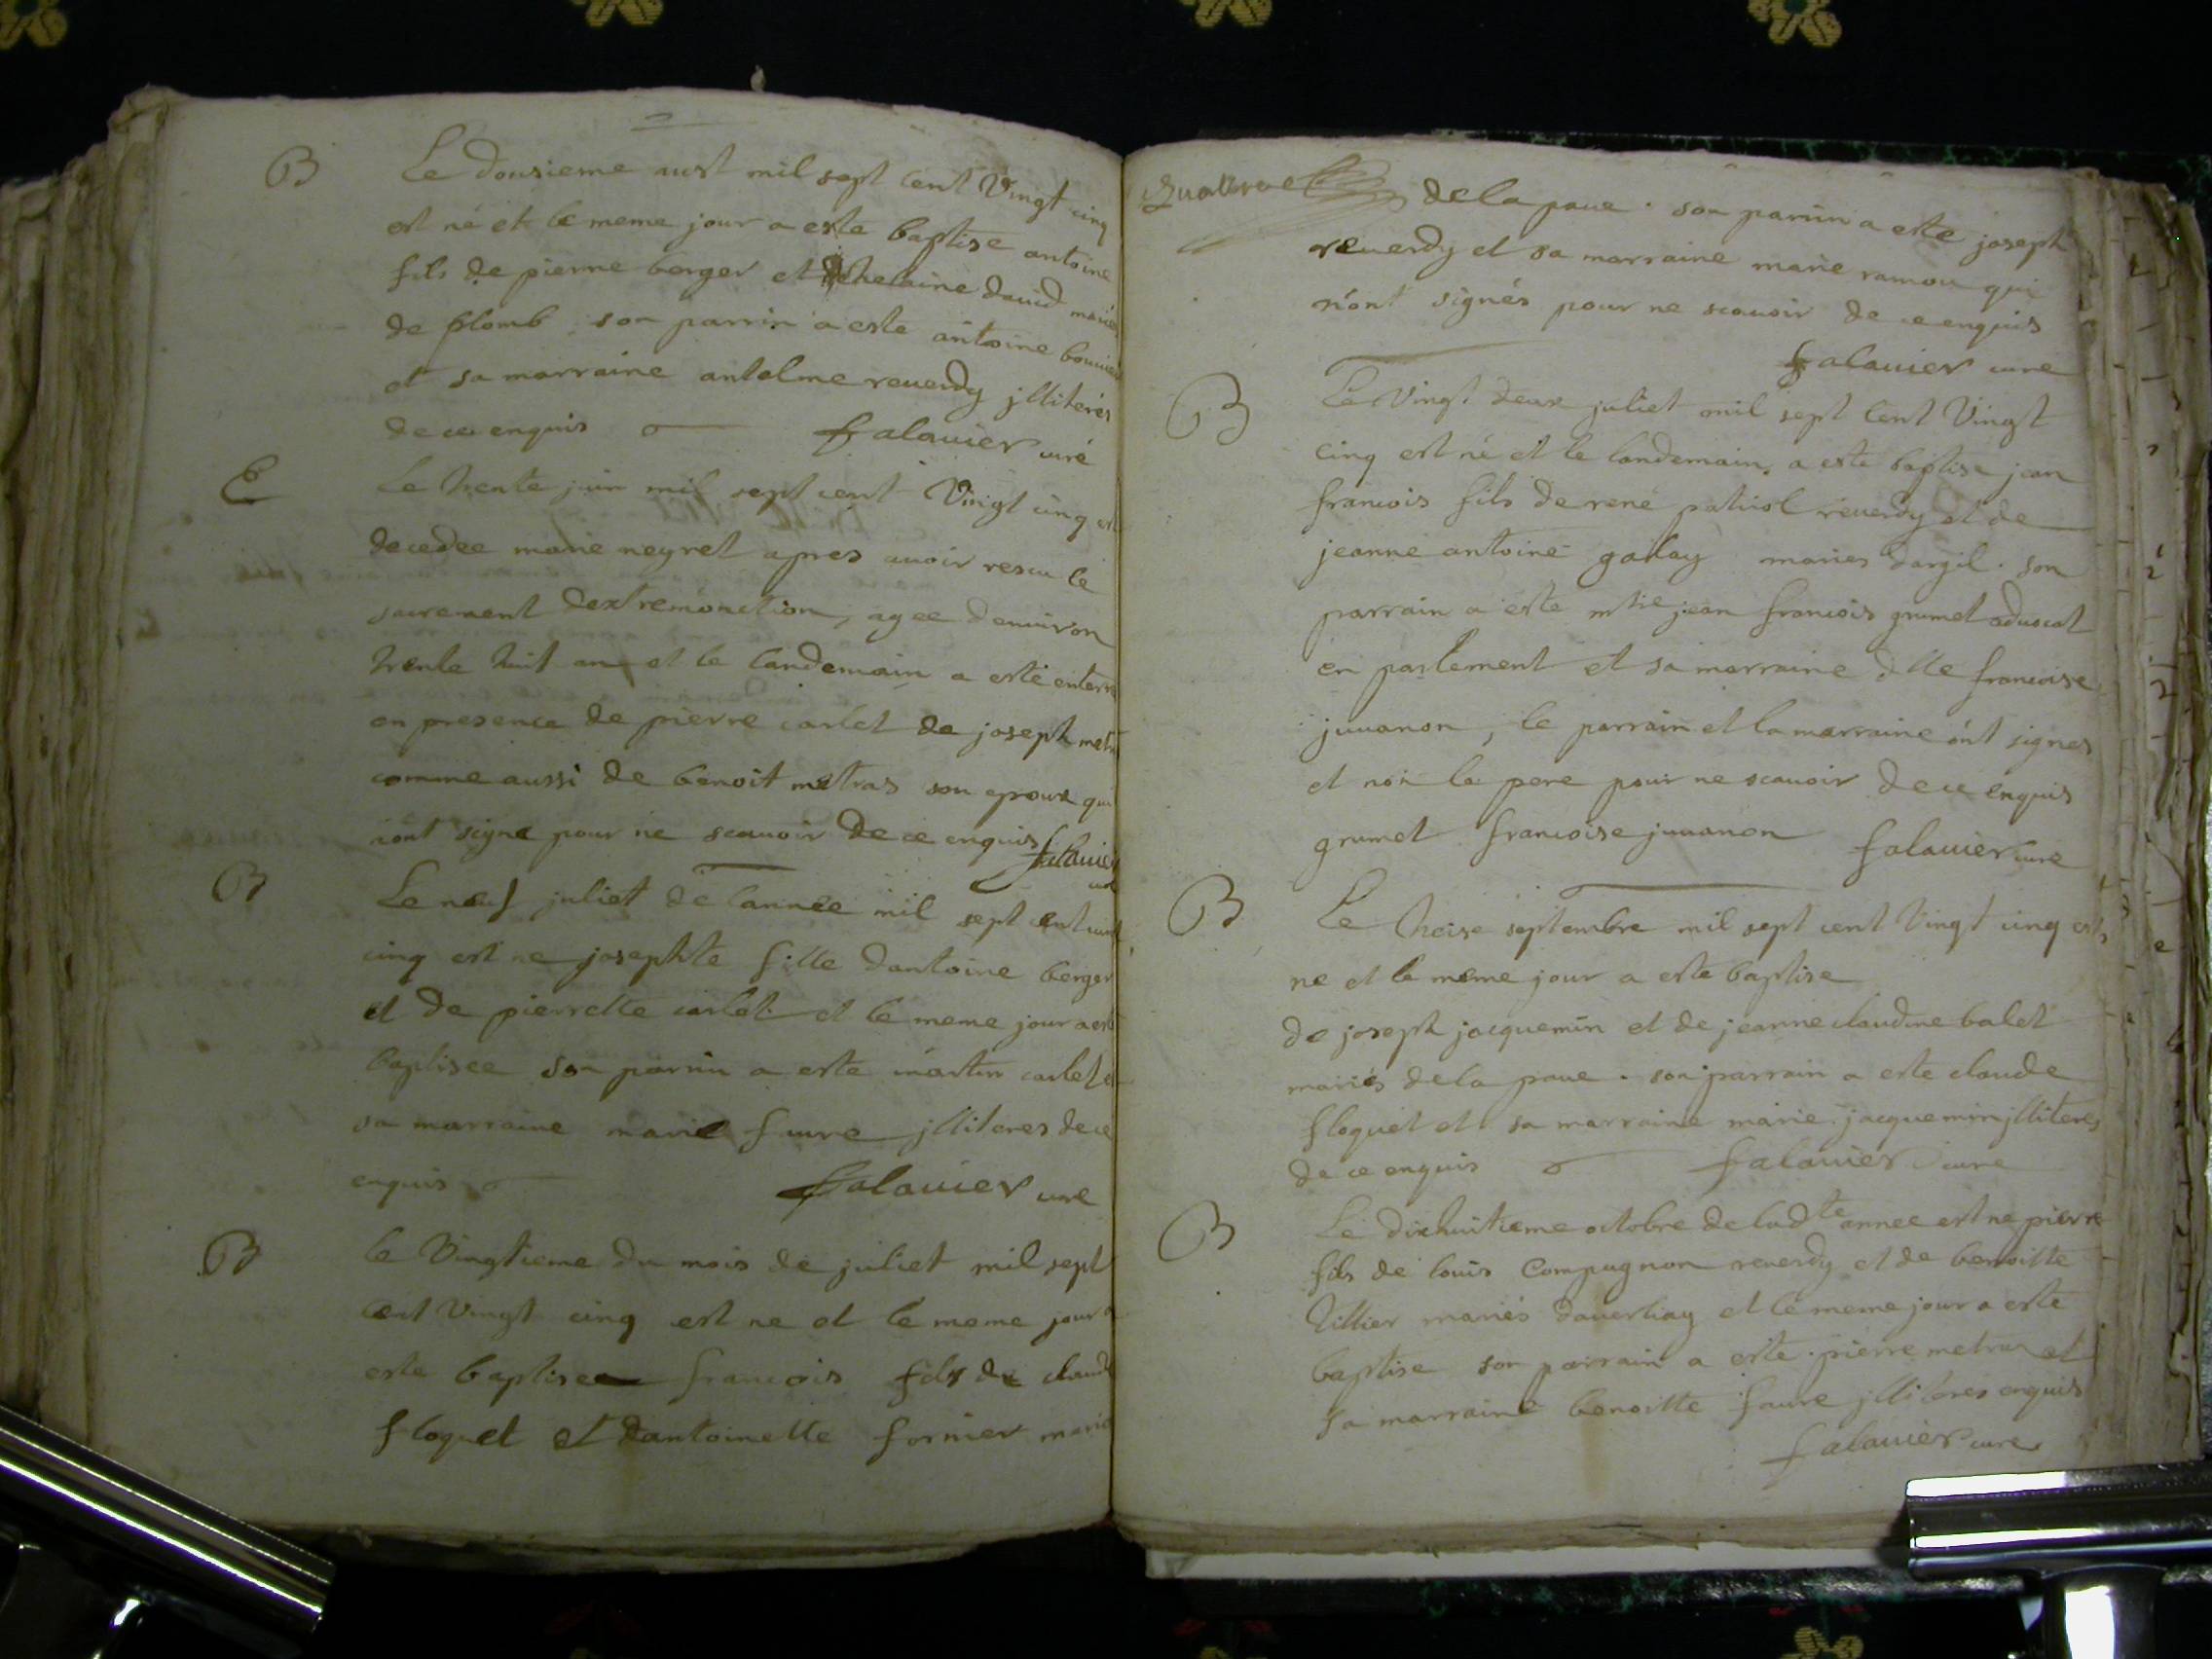 B
Le dousieme aust mil sept cent Vingt cinq
est né et le meme jour a este baptise antoine
fils de pierre berger et dehelaine david mariés
de plomb son parrin a este antoine bouvier
et sa marraine antelme reuerdy jlliterés
de ce enquis falauier curé
E
Le trente juin mil sept cent Vingt cinq est
decedee marie neyret apres auoir rescu le
sacrement dextremonction, agee denuiron
trente huit ans et le landemain a esté enterre
en presence de pierre carlet de joseph metr
comme aussi de benoit metras son epoux qui
nont signe pour ne scauoir de ce enquis falauier
cure
B
Le neuf juliet de lannee mil sept cent vint
cinq est ne josephte fille dantoine berger
et de pierrette carlet et le meme jour a este
baptisee son parrin a este martin carlet et
sa marraine marie faure jlliteres de ce
enquis falauier cure
B
le Vingtieme du mois de juliet mil sept
cent Vingt cinq est ne et le meme jour a
este baptisee francois fils de claude
floquet et dantoinette fornier marié
quatrre
de la paue. son parrin a este joseph
reuerdy et sa marraine marie ramou qui
n'ont signés pour ne scauoir de ce enquis
falauier cure
B
Le Vingt deux juliet mil sept Cent Vingt
cinq est né et le landemain, a este baptise jean
francois fils de rené patriol reuerdy et de
jeanne antoine gallay maries dargil. son
parrain a este mtre jean francois grumet aduocat
en parlement et sa marraine dlle francoise
juuanon, le parrain et la marraine ont signes
et non le pere pour ne scauoir de ce enquis
grumet francoise juuanon falauier cure
B
Le treise septembre mil sept cent Vingt cinq est
ne et le meme jour a este baptise
de joseph jacquemin et de jeanne claudine balet
mariés de la paue. son parrain a este claude
floquet et sa marraine marie jacquemin jlliteres
de ce enquis falauier cure
B
Le dixhuitieme octobre de ladte annee est ne pierre
fils de louis Compagnon reuerdy et de benoitte
tillier mariés dauerliay et le meme jour a este
baptise son parrain a este pierre metras et
sa marraine benoitte faure jlliteres enquis
falauier cure